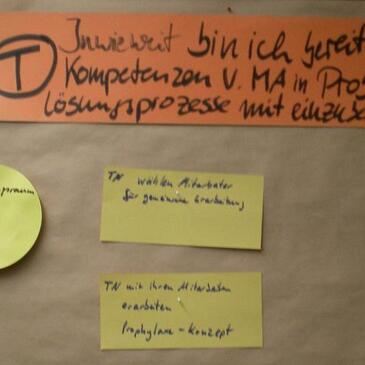 T
Inwieweit bin ich bereit
Kompetenzen v. MA in Pro
lösungsprozesse mit einzu
TN wählen Mitarbeiter
für gemeinsame Erarbeitung
TN mit ihren Mitarbeitern
erarbeiten
Prophylaxe - Konzept